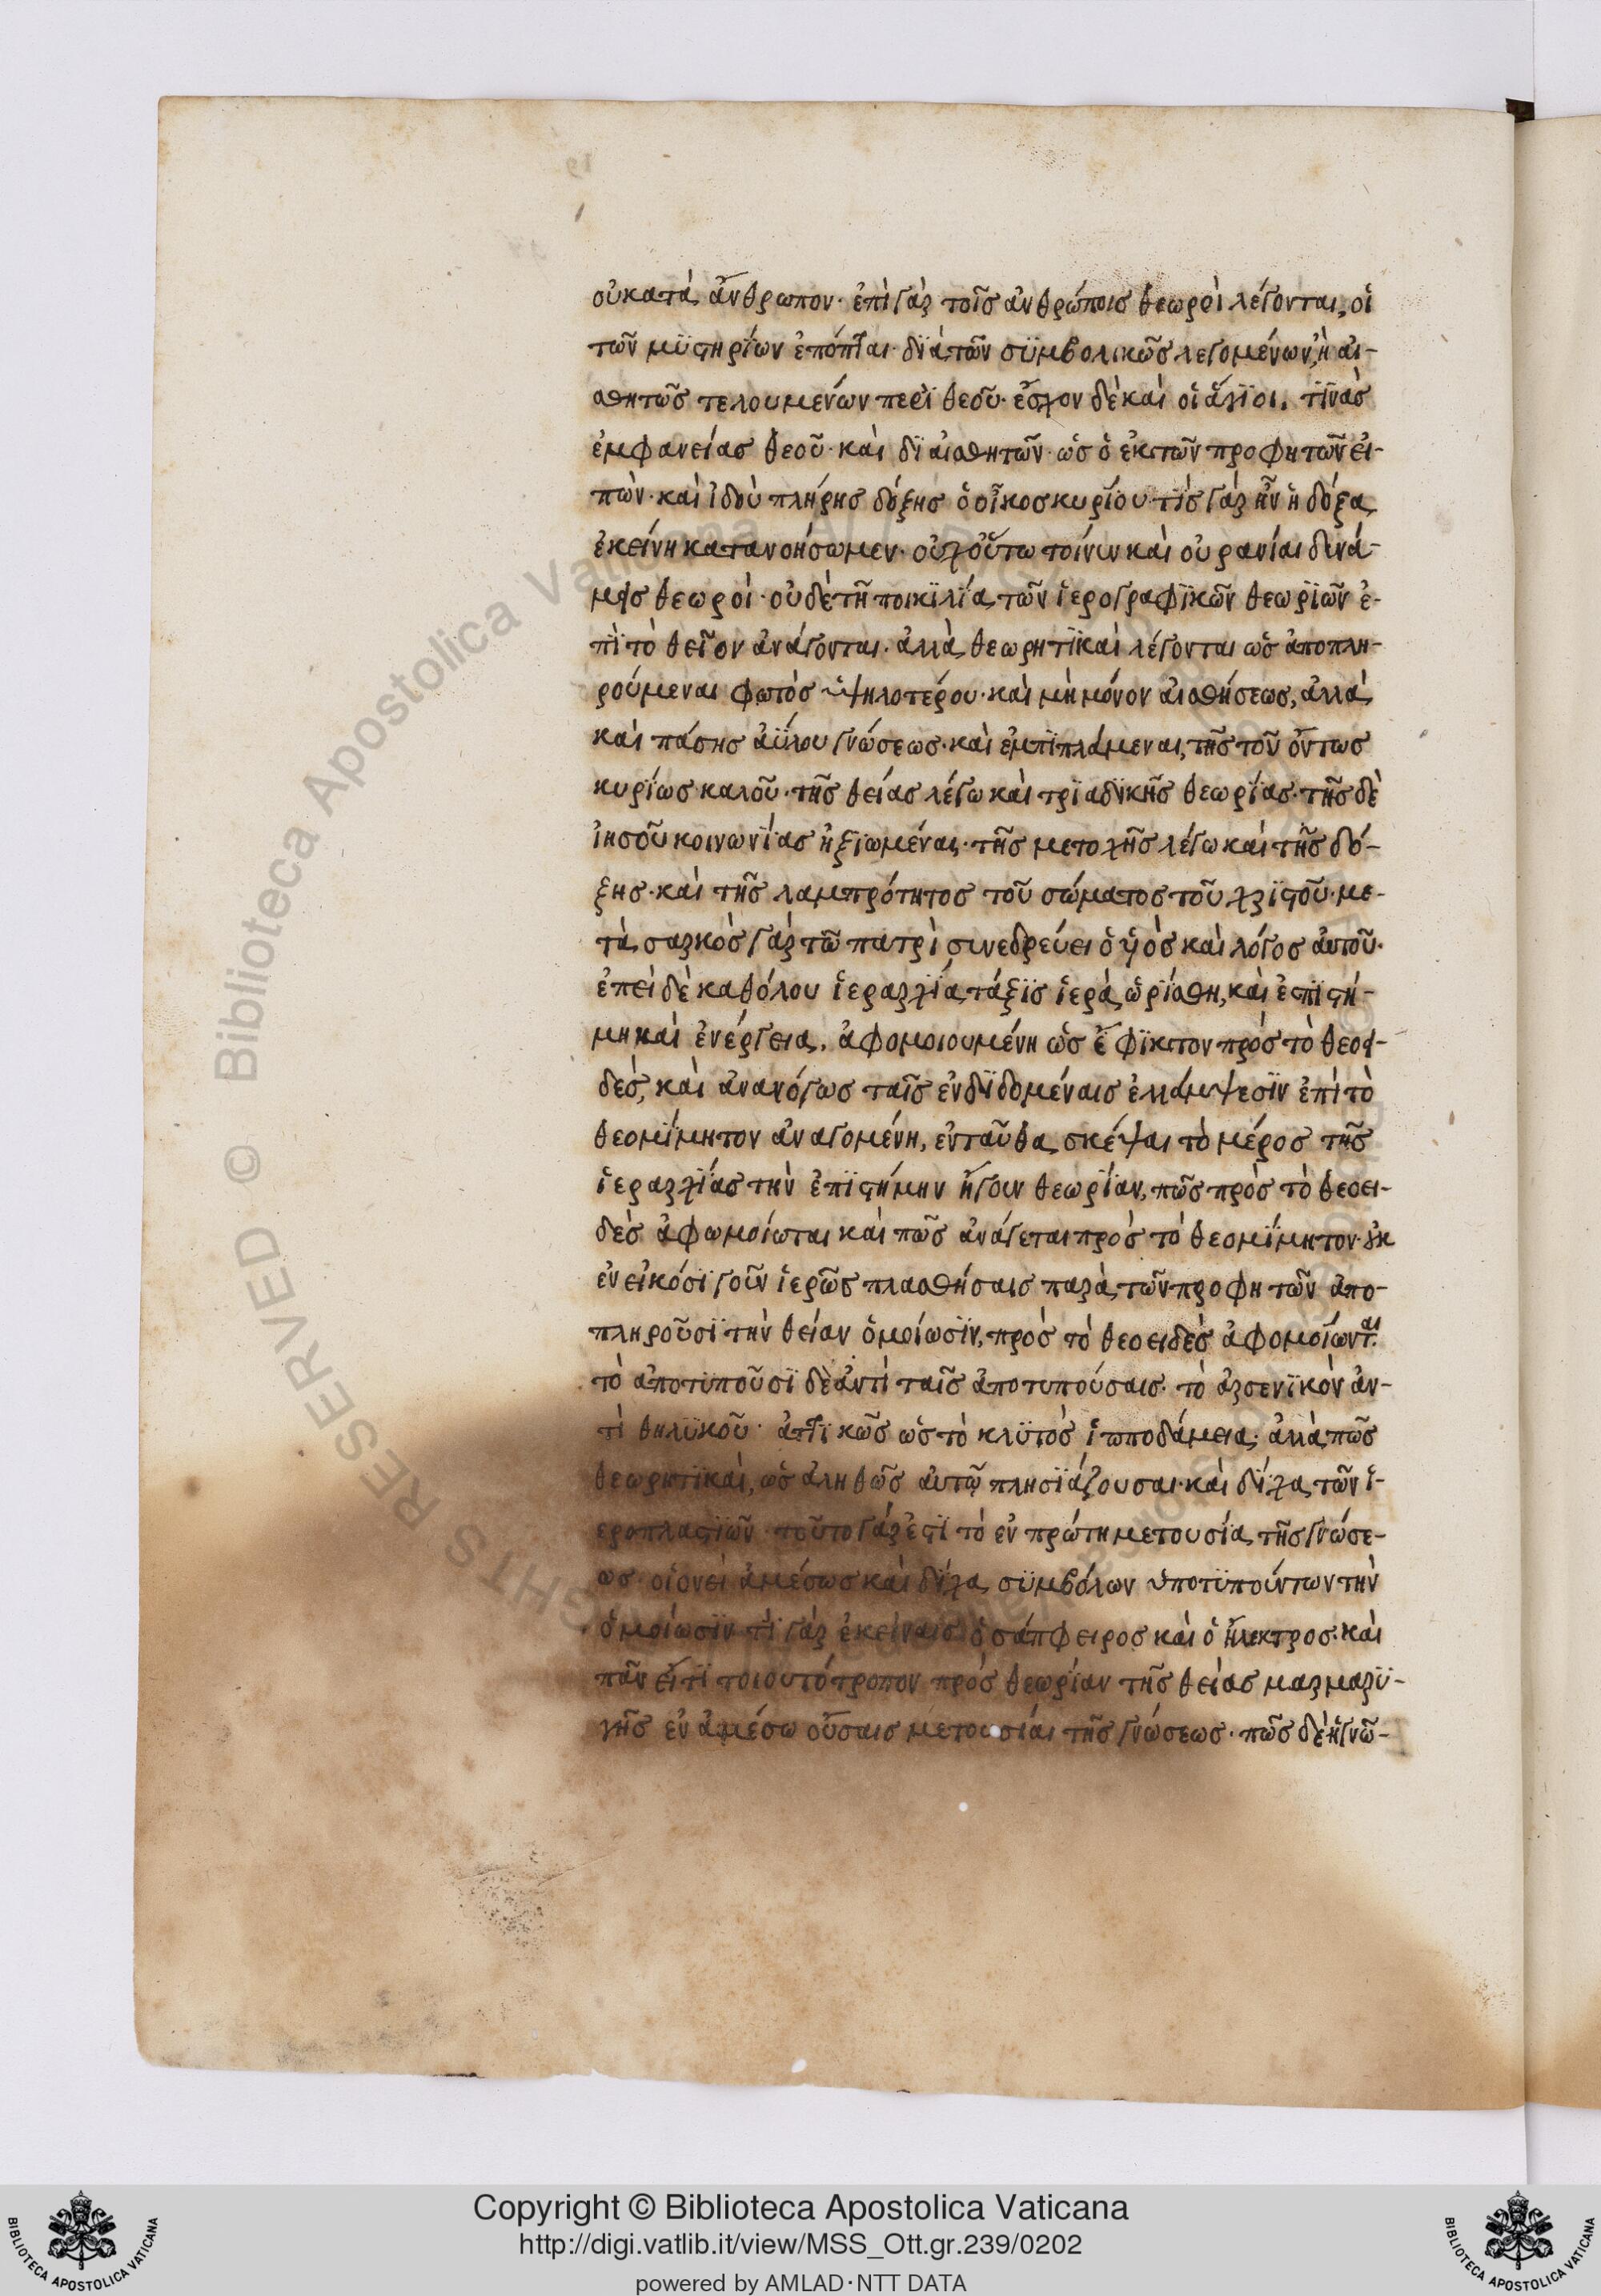 οὐ κατὰ ἄνθρωπον· ἐπὶ γὰρ τοῖς ἀνθρώποις θεωροὶ λέγονται, οἱ
τῶν μϋστηρΐων ἐπόπται· δϊὰ τῶν σϋμβολικῶς λεγομένων, ἢ αἰ-
σθητῶς τελουμένων περὶ θεοῦ· ἔσχον δὲ καὶ οἱ ἅγϊοι, τϊνὰς
ἐμφανείας θεοῦ· καὶ δϊ αἰσθητῶν· ὡς ὁ ἐκ τῶν προφητῶν εἰ-
πών· καὶ ἰδοὺ πλήρης δόξης ὁ οἶκος κυρΐου· τίς γὰρ ἦν ἡ δόξα
ἐκείνη κατανοήσωμεν· οὐχ οὕτω τοίνυν καὶ οὐράνιαι δυνά-
μεις θεωροὶ· οὐδὲ τῇ ποικιλΐα τῶν ἱερογραφϊκῶν θεωρϊῶν ἐ-
πὶ τὸ θεῖον ἀνάγονται· ἀλλὰ θεωρητϊκαὶ λέγονται ὡς ἀποπλη-
ρούμεναι φωτὸς ὑψηλοτέρου· καὶ μὴ μόνον αἰσθήσεως, ἀλλὰ
καὶ πάσης ἀΰλου γνώσεως· καὶ ἐμπϊπλάμεναι, τῆς τοῦ ὄντως
κυρΐως καλοῦ· τῆς θείας λέγω καὶ τρϊαδϊκῆς θεωρΐας· τῆς δὲ
ἰησοῦ κοινωνΐας ἠξϊωμέναι· τῆς μετοχῆς λέγω καὶ τῆς δό-
ξης· καὶ τῆς λαμπρότητος τοῦ σώματος τοῦ χρϊστοῦ· με-
τὰ σαρκὸς γὰρ τῶ πατρὶ συνεδρεύει ὁ υἱὸς καὶ λόγος αὐτοῦ·
ἐπεὶ δὲ καθόλου ἱεραρχΐα τάξϊς ἱερὰ ὡρΐσθη, καὶ ἐπϊστή-
μη καὶ ἐνέργεια, ἀφομοιουμένη ὡς ἐφϊκτον πρὸς τὸ θεοει-
δές, καὶ ἀναλόγως ταῖς ἐνδϊδομέναις ἐλλάμψεσϊν ἐπὶ τὸ
θεομΐμητον ἀναγομένη, ἐνταῦθα σκέψαι τὸ μέρος τῆς
ἱεραρχΐας τὴν ἐπϊστήμην ἤγουν θεωρΐαν, πῶς πρὸς τὸ θεοει-
δὲς ἀφωμοίωται καὶ πῶς ἀνάγεται πρὸς τὸ θεομΐμητον· οὐκ
ἐν εἰκόσϊ γοῦν ἱερῶς πλασθήσαις παρὰ τῶν προφητῶν ἀπο-
πληροῦσϊ τὴν θείαν ὁμοίωσϊν, πρὸς τὸ θεοειδὲς ἀφομοίωνται·
τὸ ἀποτϋποῦσϊ δὲ ἀντὶ ταῖς ἀποτυπούσαις· τὸ ἀρσενϊκὸν ἀν-
τὶ θηλϋκοῦ· ἀττϊκῶς ὡς τὸ κλϋτὸς ἱπποδάμεια· ἀλλὰ πῶς
θεωρητϊκαὶ, ὡς ἀληθῶς αὐτῷ πλησϊάζουσαι· καὶ δΐχα τῶν ἱ-
εροπλαστϊῶν· τοῦτο γάρ ἐστϊ τὸ ἐν πρώτη μετουσία τῆς γνώσε-
ως· οἱονεὶ ἀμέσως καὶ δΐχα σϋμβόλων ὑποτϋπούντων τὴν
ὁμοίωσϊν· τί γὰρ ἐκείναις ὁ σάπφειρος καὶ ὁ ἤλεκτρος· καὶ
πᾶν εἴ τϊ τοιουτότροπον πρὸς θεωρίαν τῆς θείας μαρμαρϋ-
γῆς ἐν ἀμέσω οὔσαις μετουσίαι τῆς γνώσεως· πῶς δὲ ἡ γνῶ-